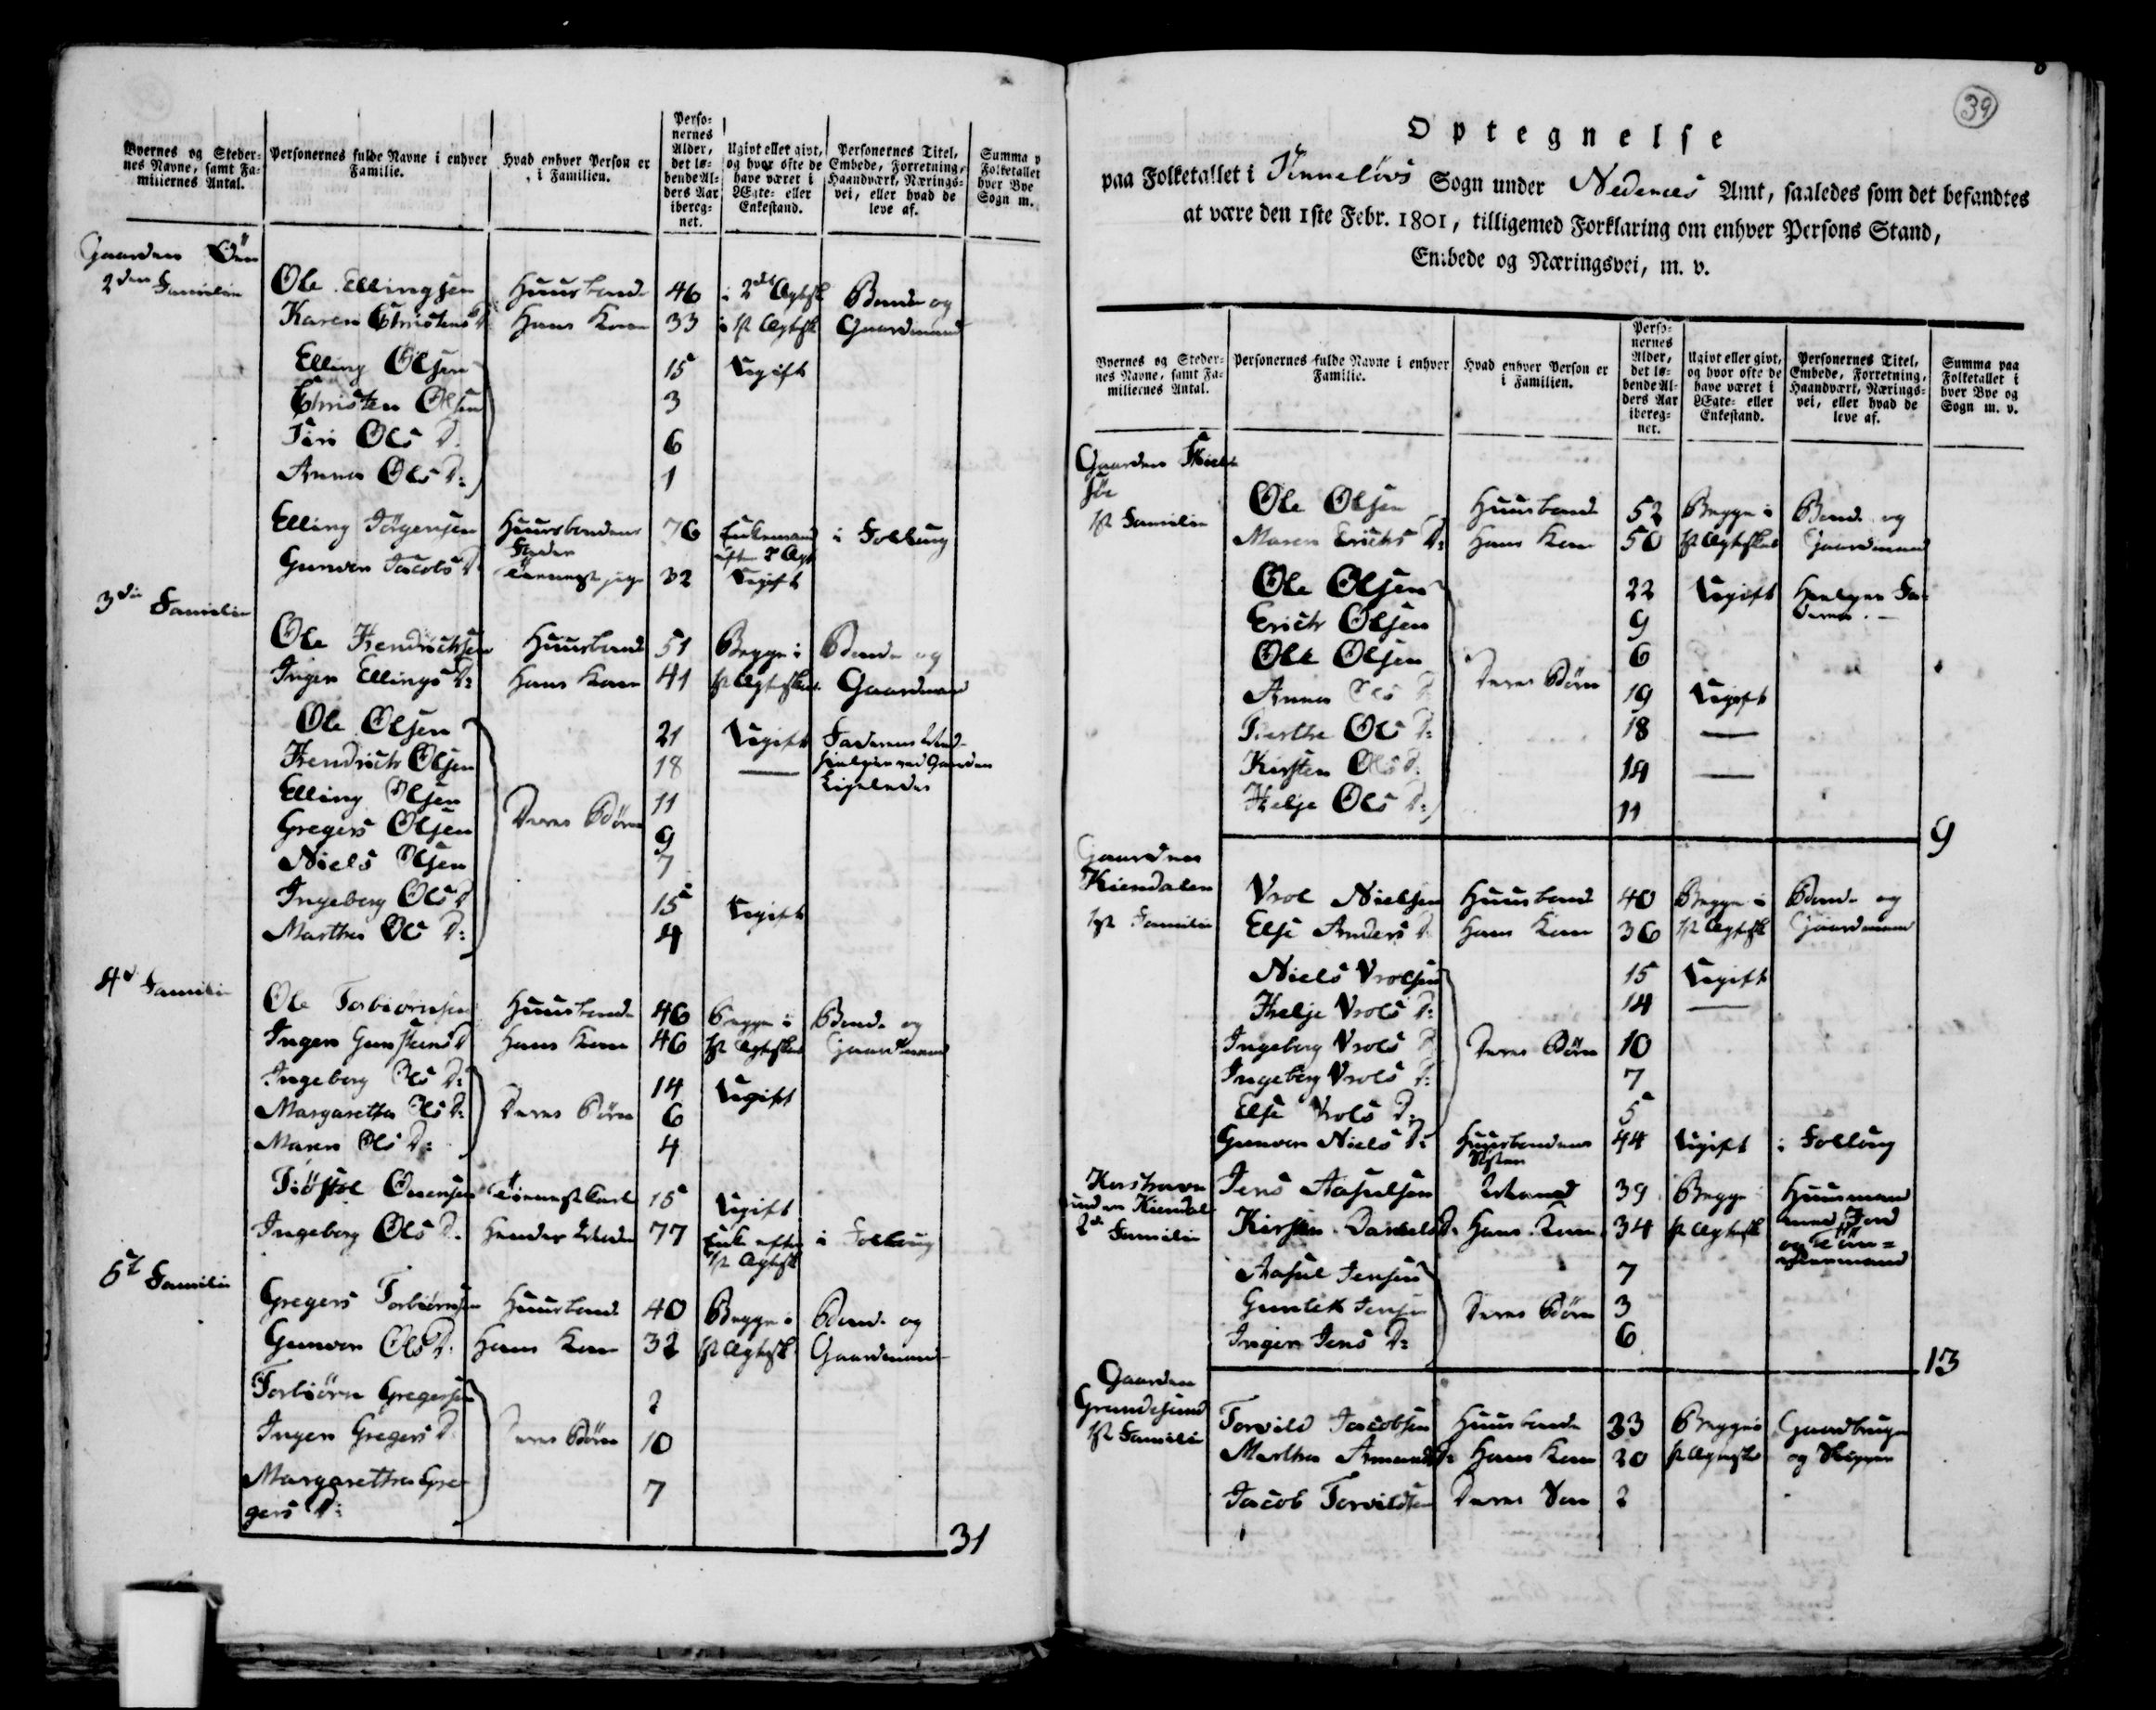 Byernes og Steder-
nes Navne, samt Fa-
miliernes Antal.
Personernes fulde Navne i enhver
Familie.
Hvad enhver Person er
i Familien.
Perso-
nernes
Alder,
det lø-
bende Al-
ders Aar
ibereg-
net.
Ugivt eller givt,
og hvor ofte de
have været i
Ægte- eller
Enkestand.
Personernes Titel,
Embede, Forretning,
Haandværk, Nærings-
vei, eller hvad de
leve af.
Summa p
Folketallet
hver Bye
Sogn m.
Gaarden
2den Familie Ole Ellingsen Huusbonde 46 i 2det Ægtesk Bonde og
Karen Christens D: Hans Kone 33 i 1st Ægtesk Gaardmand
Elling Olsen 15 Ugift
Christen Olsen 3
Siri Ols D: 6
Anna Ols D: 1
Elling Jørgensen Huusbondens 76 Enkemand i Folloug
Fader
Gunvor Jacobs D Tienneste pige 32 Ugift
3die Familie
Ole Hendrichsen Huusbond 51 Begge i Bonde og
Inger Ellings D: Hans Kone 41 1st Ægteskab Gaardmand
Ole Olsen 21 Ugift
Hendrich Olsen 18 —
Elling Olsen 11 Ligeledes
Gregers Olsen Deres Børn 9
Niels Olsen 7
Ingeborg Ols D 15 Ugift
Marthe Ols D: 4
4de Familie
Ole Torbiørnsen Huusbonde 46 Begge i Bonde og
Ingen Gunstens D Hans Kone 46 1st Ægteskab Gaardmand
Ingeborg Ols D: 14 Ugift
Margarethe Ols D: Deres Børn 6
Maren Ols D: 4
Tiøstol Onensen Tiennestkarl 15 Ugift
Ingeborg Ols D: 77 Enke efter i Folloug
1st Ægtesk
5te Familie
Gregers Torbiørnsen Huusbonde 40 Begge i Bonde og
Gunvor Ols D: Hans Kone 32 1st Ægtesk Gaardmand
Torbiørn Gregersen 2
Ingen Gregers D Deres Børn 10
Margarethe Gre-
gers D: 7
31
39
Optegnelse
paa Folketallet i Sønneløvs Sogn under Nedenes Amt, saaledes som det befandtes
at være den 1ste Febr. 1801, tilligemed Forklaring om enhver Persons Stand,
Embede og Næringsvei, m. v.
Byernes og Steder-
nes Navne, samt Fa-
miliernes Antal.
Personernes fulde Navne i enhver
Familie.
Hvad enhver Person er
i Familien.
Perso-
nernes
Alder,
det lø-
bende Al-
ders Aar
ibereg-
net.
Ugivt eller givt,
og hvor ofte de
have været i
Ægte- eller
Enkestand.
Personernes Titel,
Embede, Forretning,
Haandværk, Nærings-
vei, eller hvad de
leve af.
Summa paa
Folketallet i
hver Bye og
Sogn m. v.
Gaarden
1st Familie Ole Olsen Huusbonde 52 Begge i Bonde og
Maren Erichs D: Hans Kone 50 1st Ægteskab Gaardmand
Ole Olsen 22 Ugift Hielper Fa-
deren.
Erich Olsen 9
Ole Olsen 6
Anna Ols D Deres Børn 19 Ugift
Berthe Ols D: 18 —
Kirsten Ols D: 14 —
Helje Ols D: 11
9
Gaarden
Kiendalen Vrol Nielsen Huusbond 40 Begge i Bonde og
1st Familie Else Anders D Hans Kone 36 1st Ægtesk Gaardmand
Niels Vrolsen 15 Ugift
Helje Vrols D: 14 —
Ingeborg Vrols D Deres Børn 10
Ingeborg Vrols D: 7
Else Vrols D: 5
Gunvor Niels D: Huusbondens 44 Ugift i Follong
Søster
under Kiendal Jens Aasulsen Mand 39 Begge Huusmand
2d Familie Kirsten Daniels D: Hans Kone 34 1st Ægtesk med Jord
Aasul Jensen 7
Gunlek Jensen Deres Børn 3
Inger Jens D: 6
13
Gaarden
Grundesund Torvild Jacobsen Huusbonde 33 Begge i Gaardbruger
1st Familie Marthe Amunds D: Hans Kone 20 1st Ægtesk og Skipper
Jacob Torvildsen Deres Søn 2